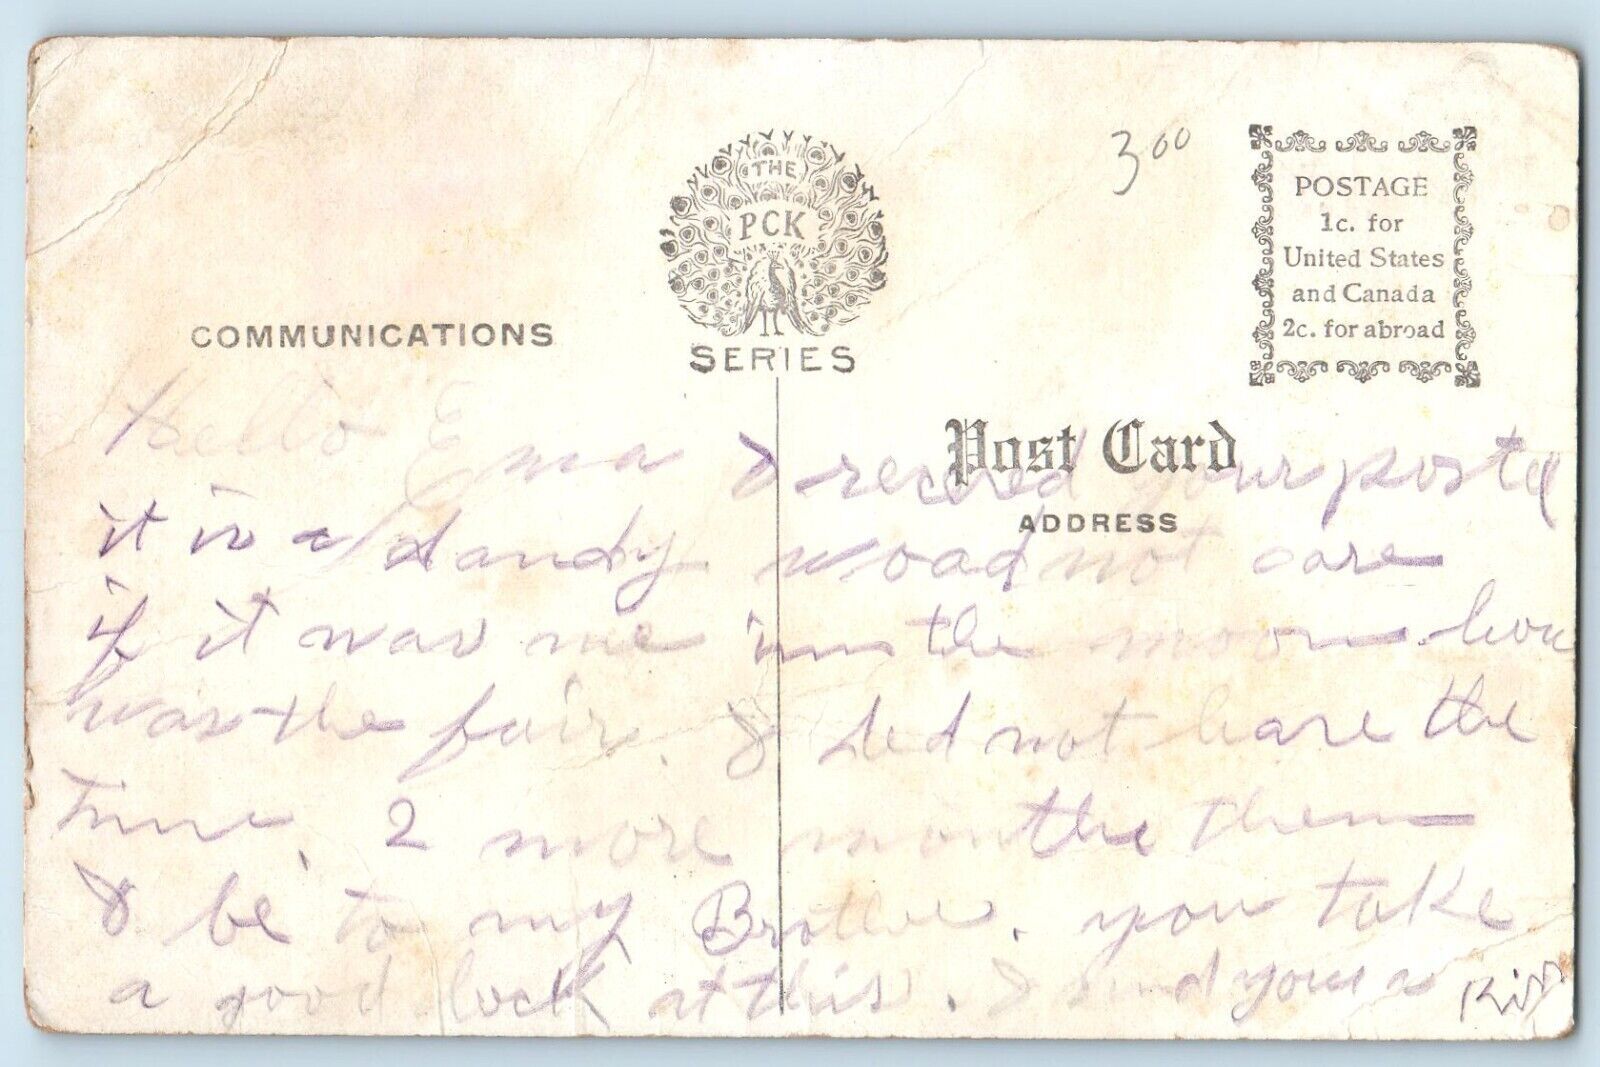 THE
PCK
SERIES
3 00
POSTAGE
1c. for
United States
and Canada
2c. for abroad
COMMUNICATIONS
Post Card
ADDRESS
Hello Ema I received your postel
it is a dandy woad not care
if it was me in the moon how
was the fair. I did not have the
time. 2 more months then
I be to my Brother. you take
a good look at this. I send you a Kiss